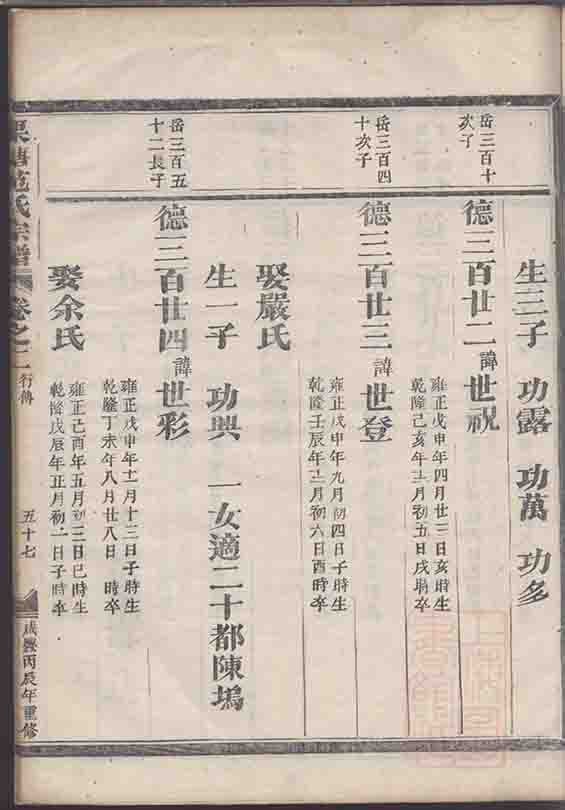 生三子 功露 功萬 功多
岳三百十
次子
德三百廿二 諱世祝
雍正戊申年四月廿三日亥時生
乾隆己亥年十二月初五日戌時卒
岳三百四
十次子
德三百廿三 諱世登
雍正戊申年九月初四日子時生
乾隆壬辰年十二月初六日酉時卒
娶嚴氏
生一子 功興 一女適二十都陳塢
岳三百五
十二長子
德三百廿四 諱世彩
雍正戊申年十一月十三日子時生
乾隆丁未年八月廿八日 時卒
娶余氏
雍正己酉年五月初三日巳時生
乾隆戊辰年正月初一日子時卒
范氏宗譜 卷之二 行傳 五十七 咸豐丙辰年重修